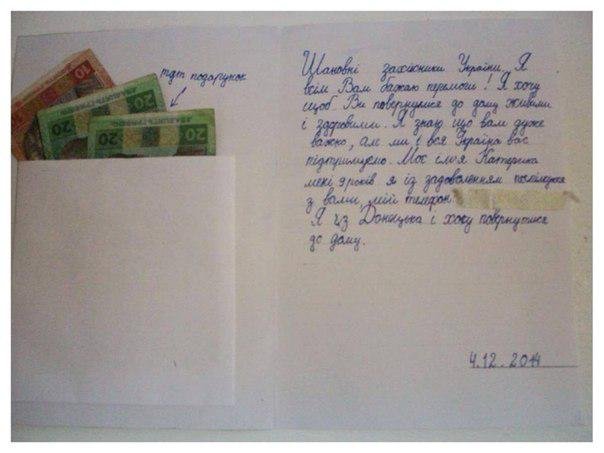 тут подарунок
10
20
ДВАДЦЯТЬ ГРИВЕНЬ
20
20
Шановні захісники України. Я
всім Вам бажаю перемоги! Я хочу
щоб Ви повернулися до дому живими
і здоровими. Я знаю що вам дуже
важко, але ми і вся Україна вас
підтримуємо. Моє ім'я Катерина
мені 9 років я із задоволенням поспілкуюся
з вами, мій телефон
Я із Донецька і хочу повернутися
до дому.
4.12.2014